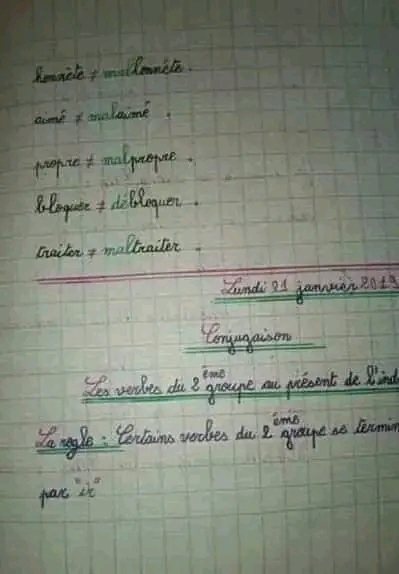 honnête ≠ malhonnête.
aimé ≠ malaimé.
propre ≠ malpropre.
bloquer ≠ débloquer.
traiter ≠ maltraiter.
Lundi 21 janvier 2019
Conjugaison
Les verbes du 2 ème groupe au présent de l'ind
La règle : Certains verbes du 2 ème groupe se termin
par "ir"